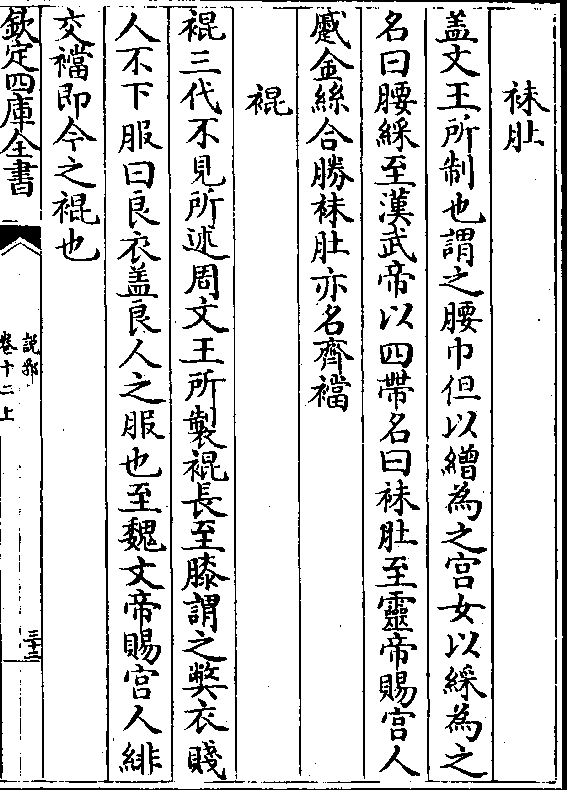 袜肚
盖文王所制也謂之腰巾但以繒為之宫女以綵為之
名曰腰綵至漢武帝以四帶名曰袜肚至靈帝賜宫人
蹙金絲合勝袜肚亦名齊襠
裩
裩三代不見所述周文王所製裩長至膝謂之獘衣賤
人不下服曰良衣盖良人之服也至魏文帝賜宫人緋
交襠即今之裩也
欽定四庫全書
說郛
卷十二上
三十二